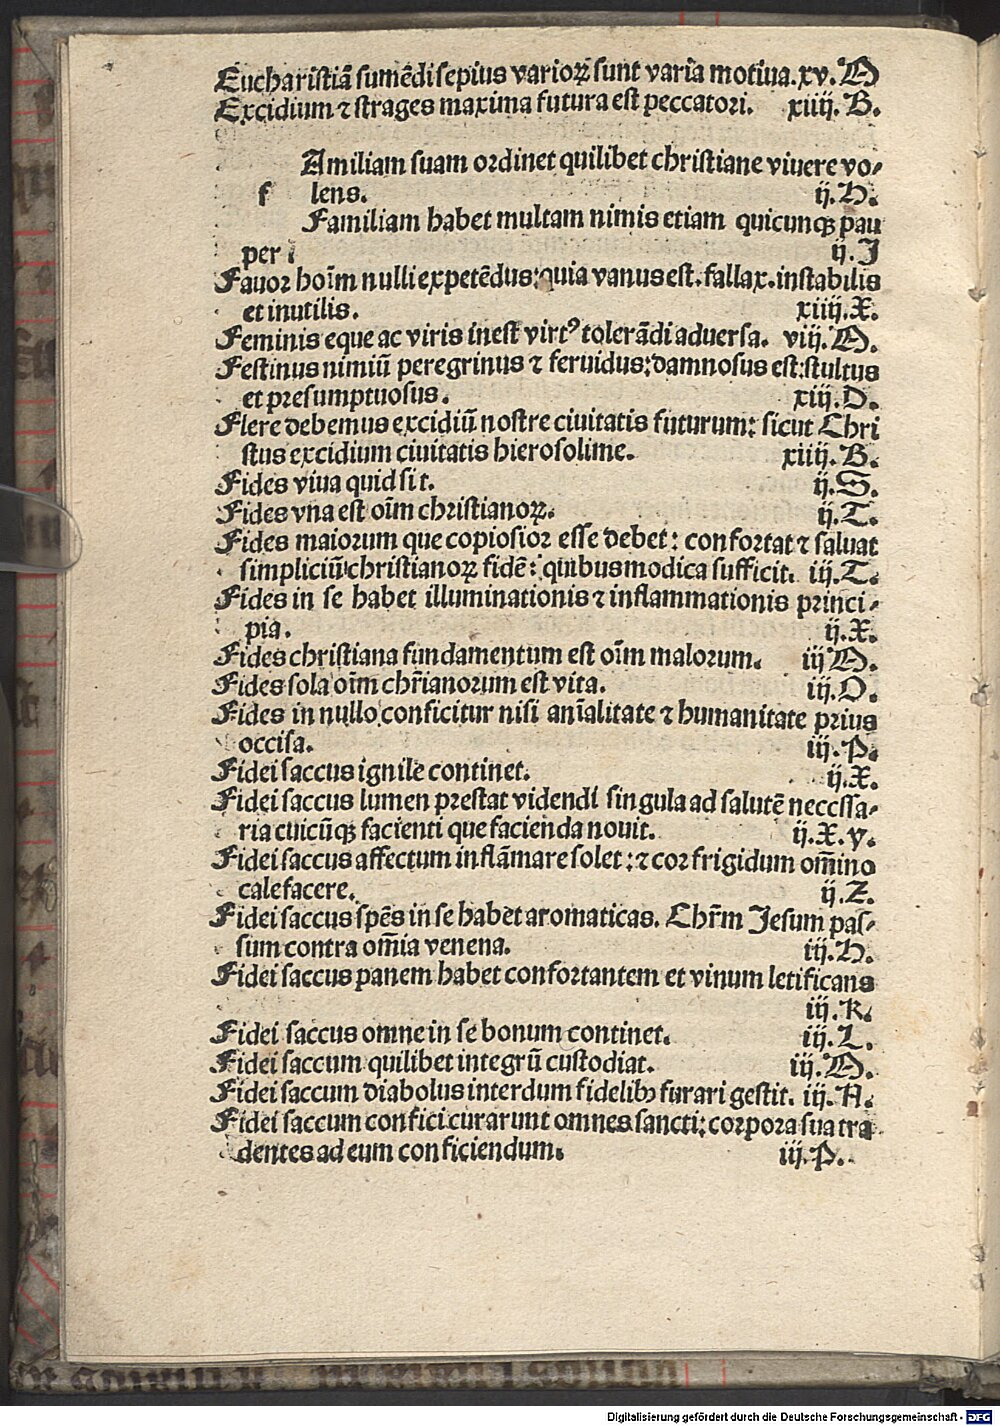 Euchariſtiā ſumēdi ſepius varioꝝ ſunt varia motiua. xv. M
Excidium ⁊ ſtrages maxima futura eſt peccatori. xiiij. B.
Amiliam ſuam ordinet quilibet chriſtiane viuere vo-
f lens. ij. H.
Familiam habet multam nimis etiam quicunqꝫ pau
per ij. I
Fauor hoīm nulli expetēdus: quia vanus est. fallax. inſtabilis
et inutilis. xiiij. X.
Feminis eque ac viris ineſt virtꝰ tolerādi aduerſa. viij. M.
Feſtinus nimiū peregrinus ⁊ feruidus: damnoſus est: ſtultus
et preſumptuoſus. xiij. D.
Flere debemus excidiū noſtre ciuitatis futurum: ſicut Chri
ſtus excidium ciuitatis hieroſolime. xiiij. B.
Fides viua quid ſit. ij. S.
Fides vna est oīm chriſtianoꝝ. ij. T.
Fides maiorum que copioſior eſſe debet: confortat ⁊ ſaluat
ſimpliciū chriſtianoꝝ fidē: quibus modica ſufficit. iij. T.
Fides in ſe habet illuminationis ⁊ inflammationis princi-
pia. ij. X.
Fides chriſtiana fundamentum est oīm malorum. iij M.
Fides ſola oīm chr̄ianorum est vita. iij. O.
Fides in nullo conficitur niſi anīalitate ⁊ humanitate prius
occiſa. iij. P.
Fidei ſaccus ignile continet. ij. X.
Fidei ſaccus lumen preſtat videndi ſingula ad ſalutē neceſſa-
ria cuicūqꝫ facienti que facienda nouit. ij. X. y.
Fidei ſaccus affectum inflāmare ſolet: ⁊ cor frigidum om̄ino
calefacere. ij. Z.
Fidei ſaccus ſpēs in ſe habet aromaticas. Chr̄m Jeſum paſ-
ſum contra om̄ia venena. iij. H.
Fidei ſaccus panem habet confortantem et vinum letificans
iij. K.
Fidei ſaccus omne in ſe bonum continet. iij. L.
Fidei ſaccum quilibet integrū cuſtodiat. iij. M.
Fidei ſaccum diabolus interdum fidelibꝫ furari geſtit. iij. N.
Fidei ſaccum confici curarunt omnes sancti: corpora ſua tra
dentes ad eum conficiendum. iij. P.
Digitalisierung gefördert durch die Deutsche Forschungsgemeinschaft - DFG